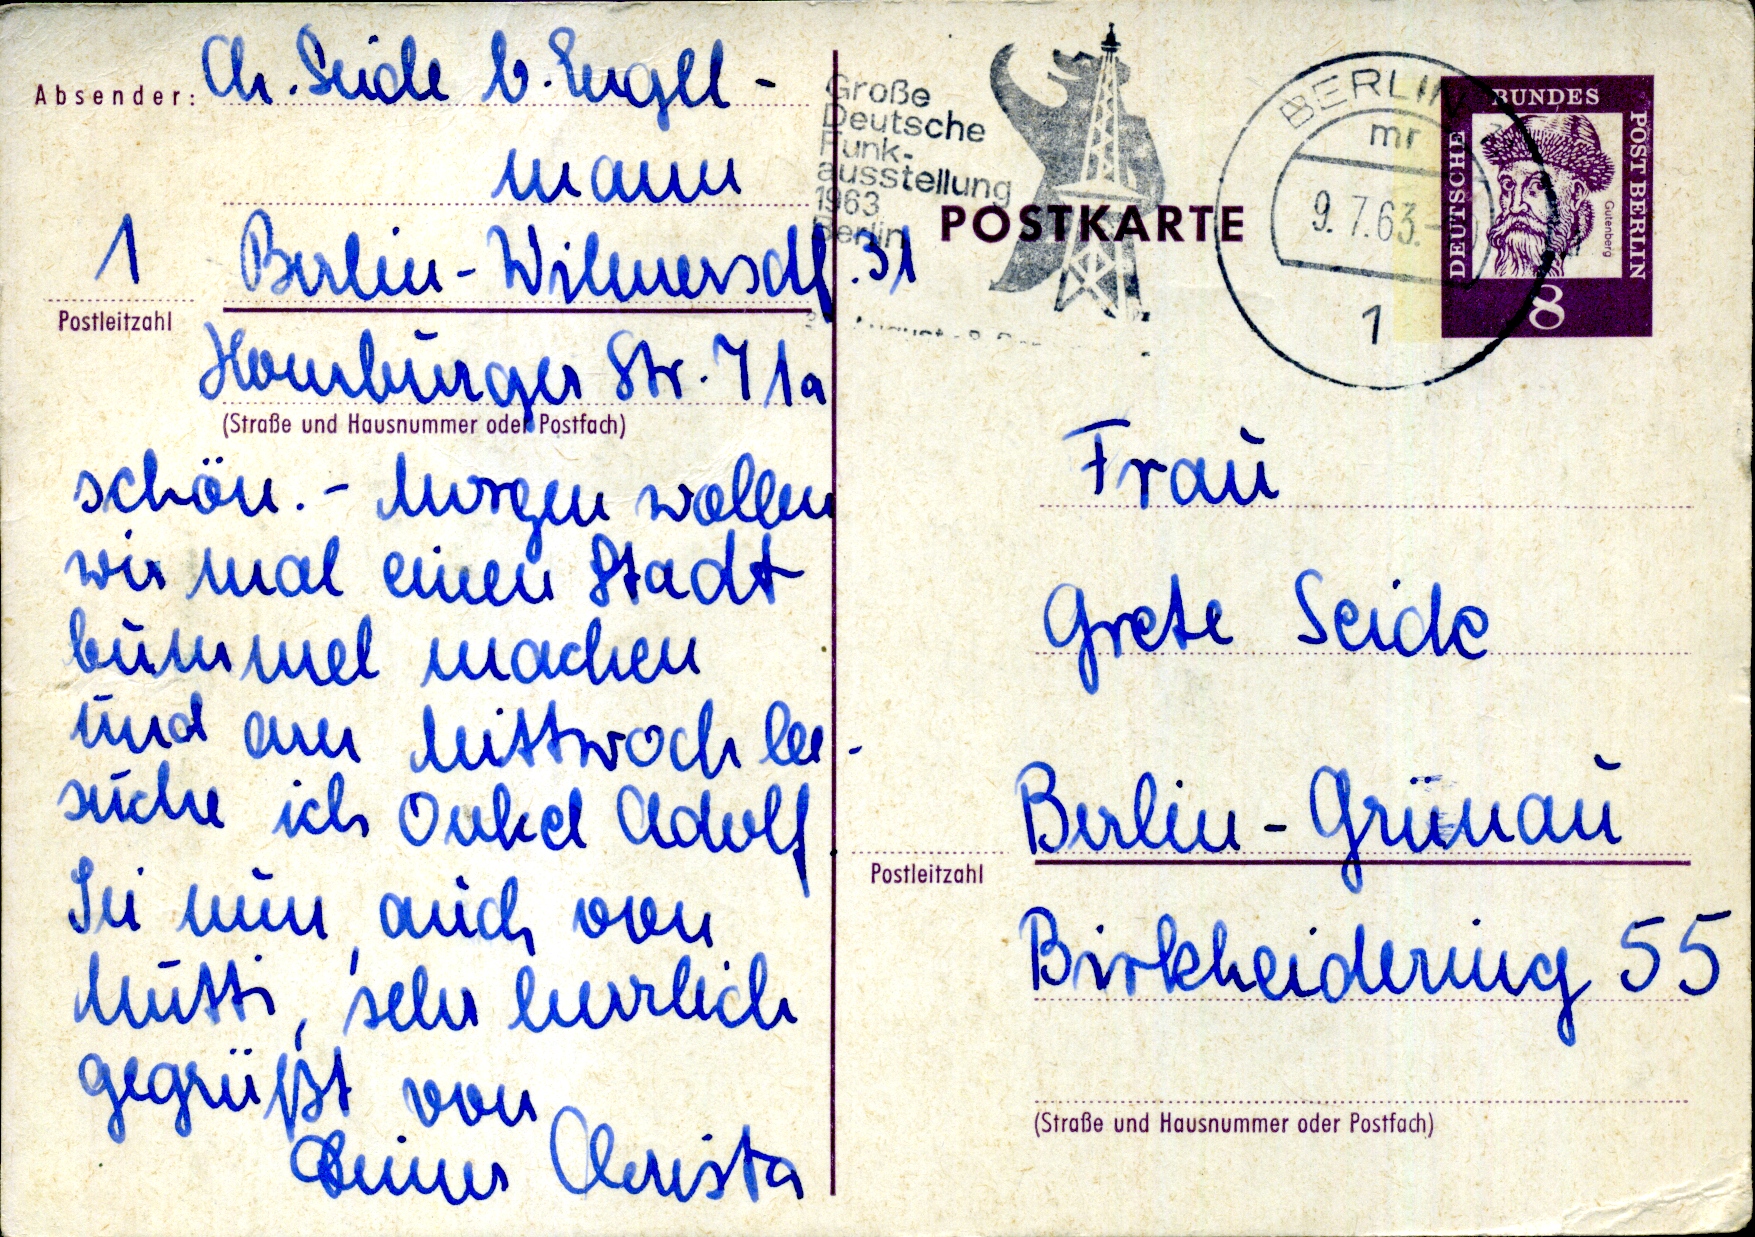 Absender: Ch. Seide b. Engel-
mann
1 Berlin-Wilmersdf. 31
Postleitzahl
Homburger Str. 71a
(Straße und Hausnummer oder Postfach)
schön. - Morgen wollen
wir mal einen Stadt
bummel machen
und am Mittwoch be-
suche ich Onkel Adolf
Sei nun, auch von
Mutti, sehr herzlich
gegrüßt von
Deiner Christa
Große
Deutsche
Funk-
ausstellung
1963
Berlin
POSTKARTE
BERLIN
mr
9.7.63.-
1
DEUTSCHE
BUNDES
POST BERLIN
Gutenberg
8
Frau
Grete Seide
Berlin-Grünau
Postleitzahl
Birkheidering 55
(Straße und Hausnummer oder Postfach)